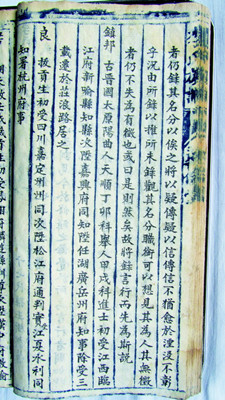 者仍錄其名分以俟之將以疑傳疑以信傳信不猶愈於湮沒不彰
乎況由所錄以推所未錄觀其名分職銜可以想見其為人其無徵
者仍不失為有徵也或曰是則然矣故將錄言行而先為斯說
鎮邦 古晉國太原陽曲人天順丁卯科舉人甲戌科進士初受江西臨
江府新喻縣知縣次陞嘉興府同知陞任湖廣岳州府知事除受三
載遷於莊浪路居之
良 拔貢生初受四川嘉定州州同次陞松江府通判實江夏水利同
知署杭州府事